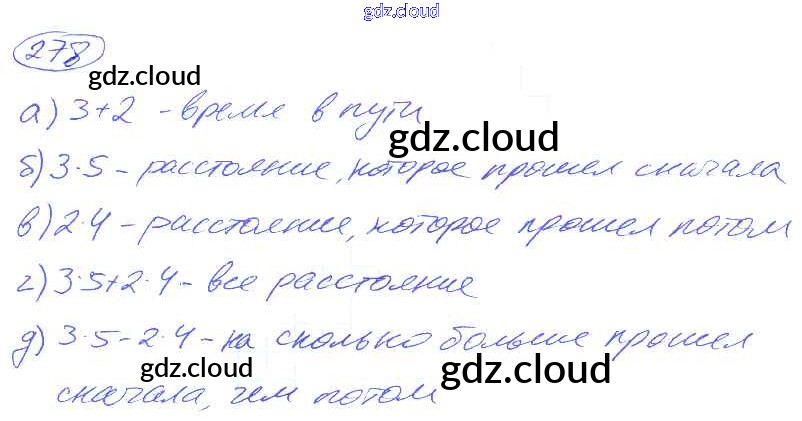 gdz.cloud
278
gdz.cloud
а) 3+2 - время в пути
gdz.cloud
б) 3·5 - расстояние, которое прошел сначала
в) 2·4 - расстояние, которое прошел потом
г) 3·5+2·4 - все расстояние
д) 3·5-2·4 - на сколько больше прошел
gdz.cloud gdz.cloud
сначала, чем потом